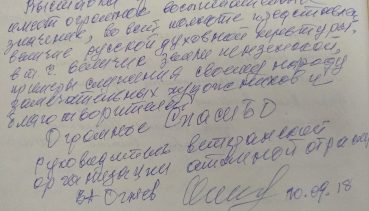 Выставка
имеет огромное воспитательное
значение, во всей полноте представлено
величие русской духовной культуры,
в т.ч. величие земли пензенской,
примеры служения своему народу
замечательных художников и
благотворителей!
Огромное СПАСИБО
руководитель ветеранской
организации атомной отрасли
ВА Огнев
10.09.18